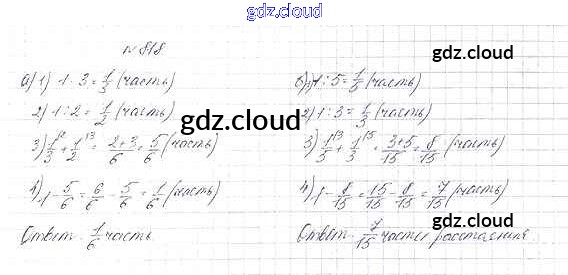 gdz.cloud
№ 818
gdz.cloud
а) 1) 1 : 3 = 1/3 (часть)
2) 1 : 2 = 1/2 (часть)
gdz.cloud
3) 1/3 + 1/2 = 2+3/6 = 5/6 (часть)
4) 1 - 5/6 = 6/6 - 5/6 = 1/6 (часть)
Ответ: 1/6 часть
б) 1) 1 : 5 = 1/5 (часть)
2) 1 : 3 = 1/3 (часть)
3) 1/5 + 1/3 = 3+5/15 = 8/15
gdz.cloud
4) 1 - 8/15 = 15/15 - 8/15 = 7/15 (часть)
gdz.cloud
Ответ: 7/15 расстояния